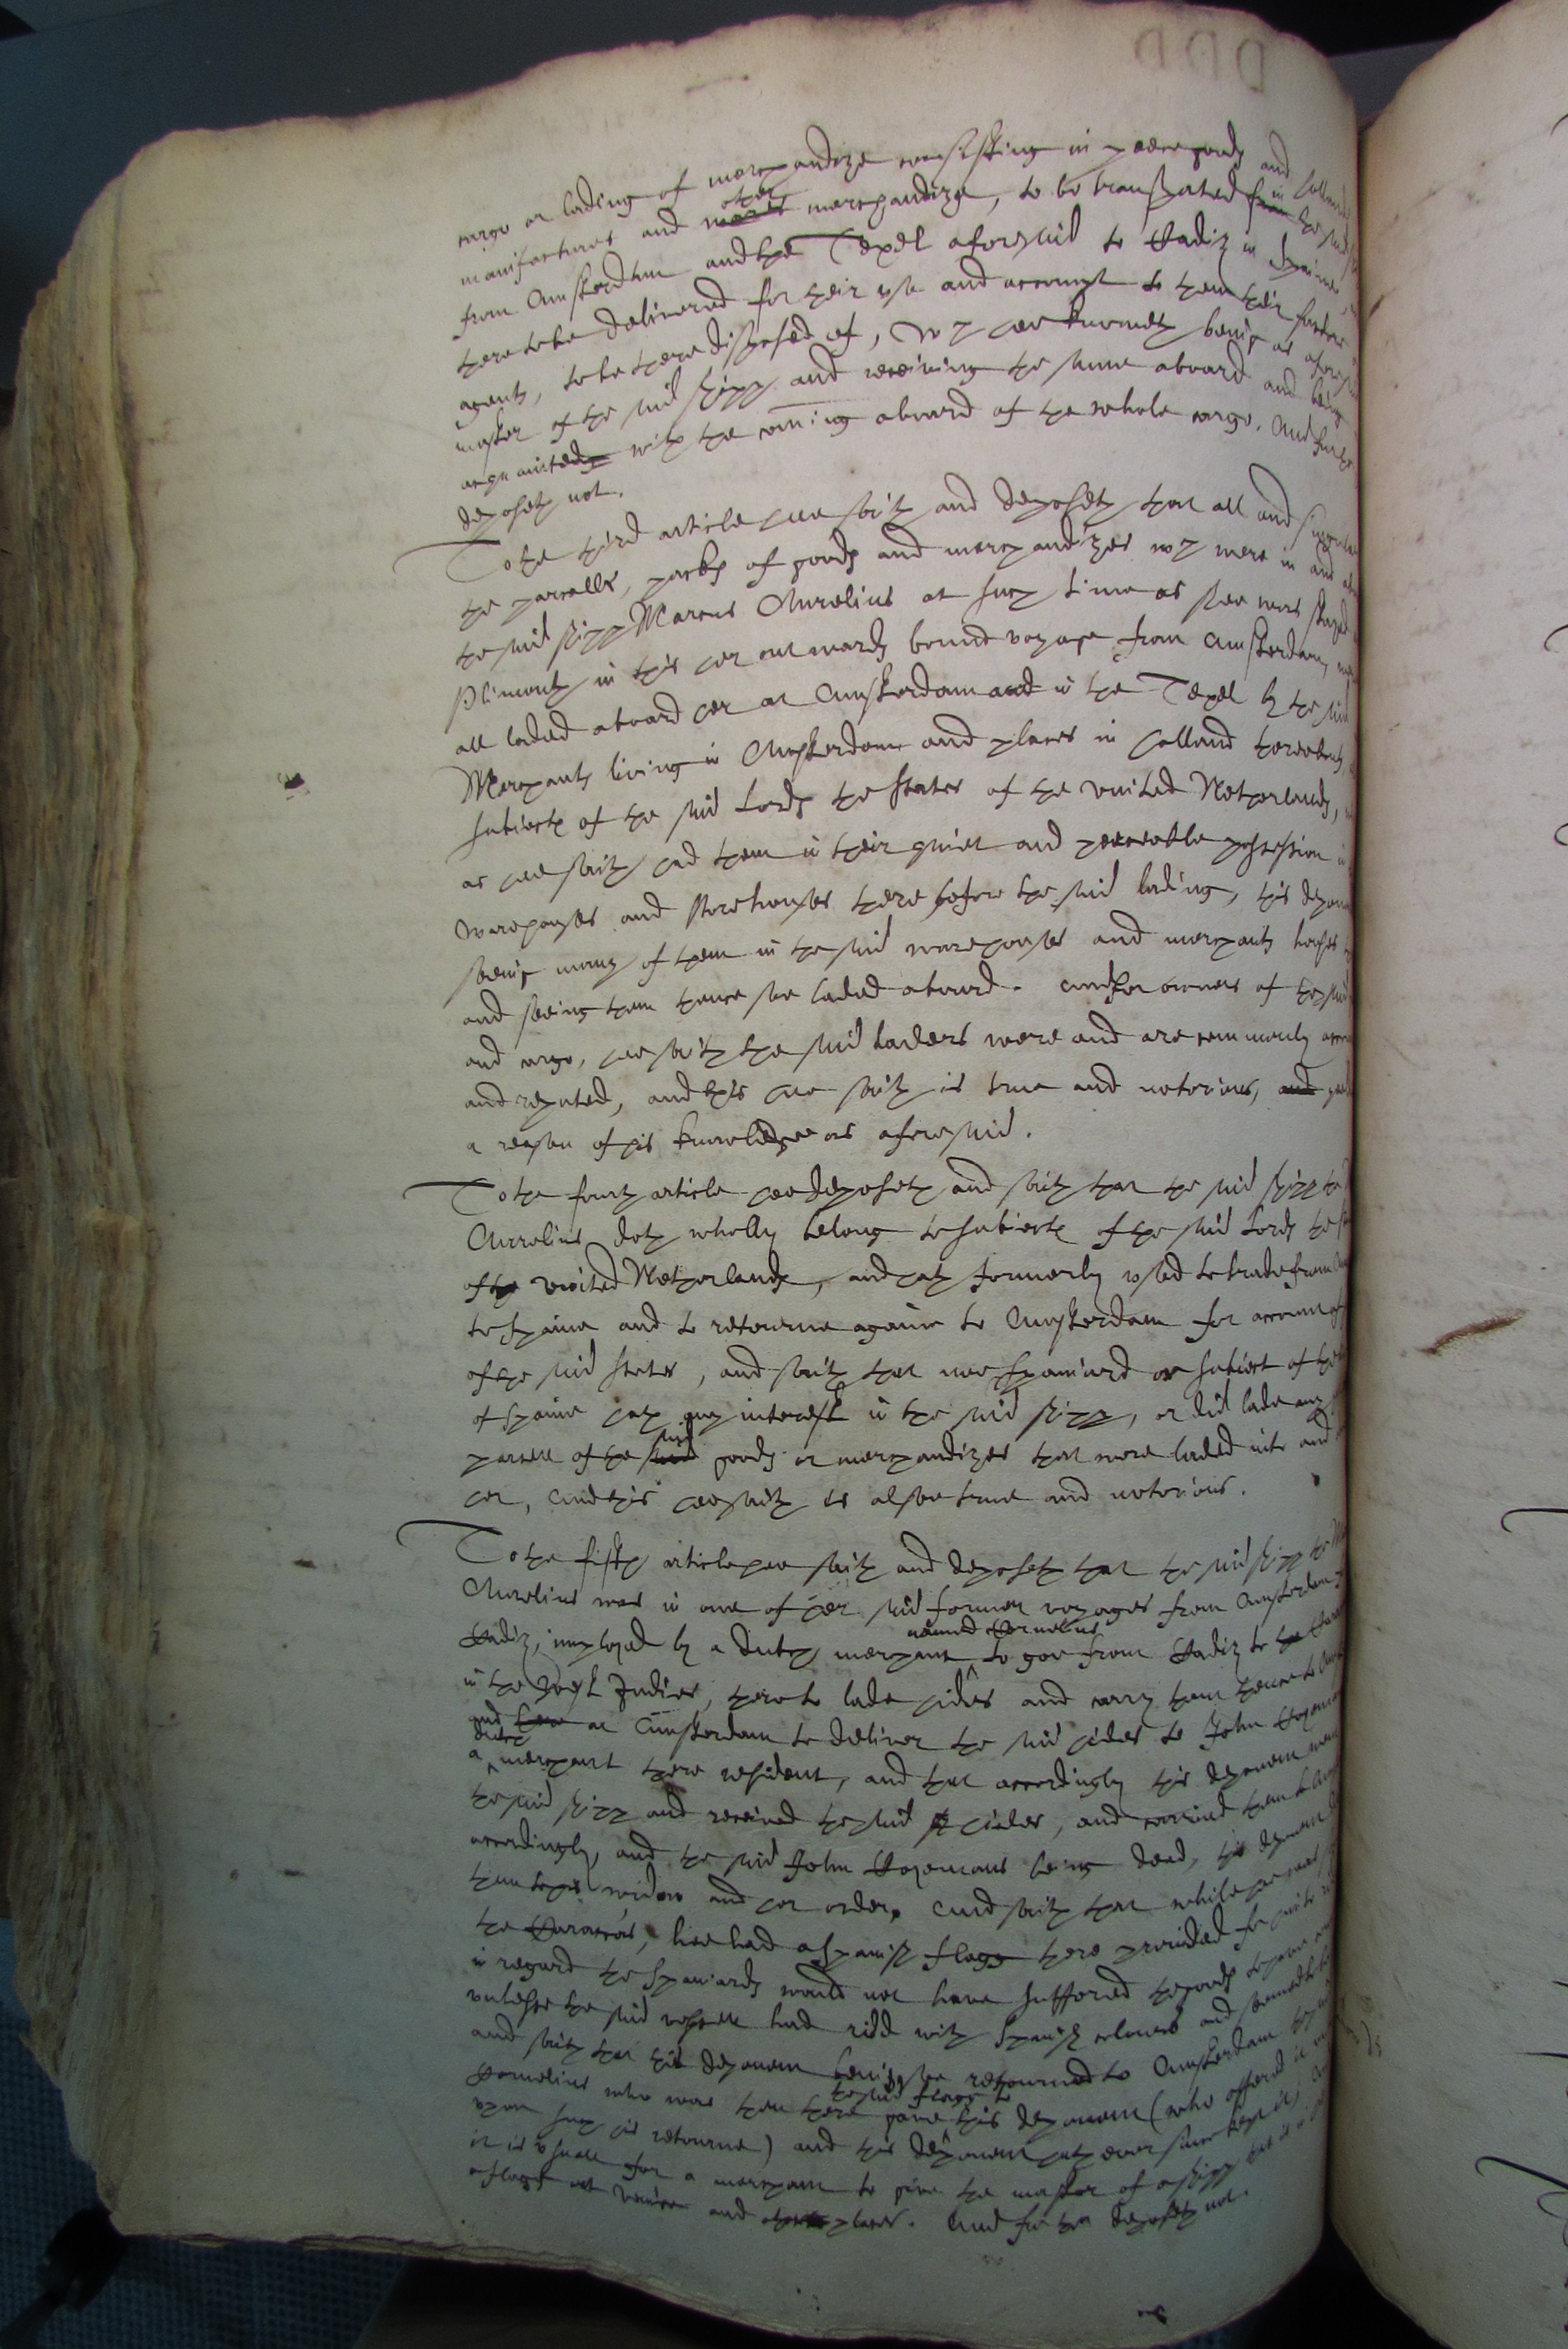 cargo or lading of merchandize consisting in peece goods and holland
manifactures and other merchandize, to be transported in the said
from Amsterdam and the Texel aforesaid to Cadiz in Spaine,
there to be delivered for their use and accompt to them their factors
agents, to be there disposed of, wch hee knoweth being as aforesaid
master of the said shipp and receiving the same aboard and being
acquainted with the coming aboard of the whole cargo. And further
deposeth not.
To the third article hee saith and deposeth that all and singular
the parcells, packs of goods and merchandizes wch were in and
the said shipp Marcus Aurelius at such time as shee was stayed
Plimouth in this her outwards bound voyage from Amsterdam,
all laded aboard her at Amsterdam and in the Texel by the said
Merchants living in Amsterdam and places in holland thereabouts,
subiects of the said Lords the States of the united Netherlands,
as hee saith had them in their quiet and peaceable possession
warehouses and storehouses there before the said lading, this
seeing many of them in the said warehouses and merchants houses
and seeing them thence soe laded aboard. And for owners of the said
and cargo, hee saith the said laders were and are commonly
and reputed, and this hee saith is true and notorious, and
a reason of his knowledge as aforesaid.
To the fourth article hee deposeth and saith that the said shipp the
Aurelius doth wholly belong to subiects of the said Lords the
of the united Netherlands, and hath formerly used to trade from
to Spaine and to retourne againe to Amsterdam for accompt of
of the said States, and saith that noe Spaniard or subiect of the
of Spaine hath any interest in the said shipp, or did lade any
parcell of the said goods or merchandizes that were laded into and
her, And this hee saith is alsoe true and notorious.
To the fifth article hee saith and deposeth that the said shipp the
Aurelius was in one of her said former voyages from Amsterdam
Cadiz, imployed by a dutch merchant named Cornelius to goe from Cadiz to the
in the West Indies, there to lade hides and carry them thence to
and there at Amsterdam to deliver the said hides to John
a dutch merchant there resident, and that accordingly this deponent
the said shipp and received the said hides, and carried them to
accordingly, and the said John being dead, this deponent
them to his widow and her order, And saith that while hee was
the hee had a Spanish flagg there provided for
in regard the Spaniards would not have suffered the goods
unlesse the said vessell had ridd with Spanish colours and
and saith that this deponent being soe retourned to Amsterdam
Cornelius who was then there gave the said flagg to this deponent (who offered it
upon such his retourne) and this deponent hath ever since kept it,
it is usuall for a merchant to give the master of a shipp
a flagg at and places. And further deposeth not.